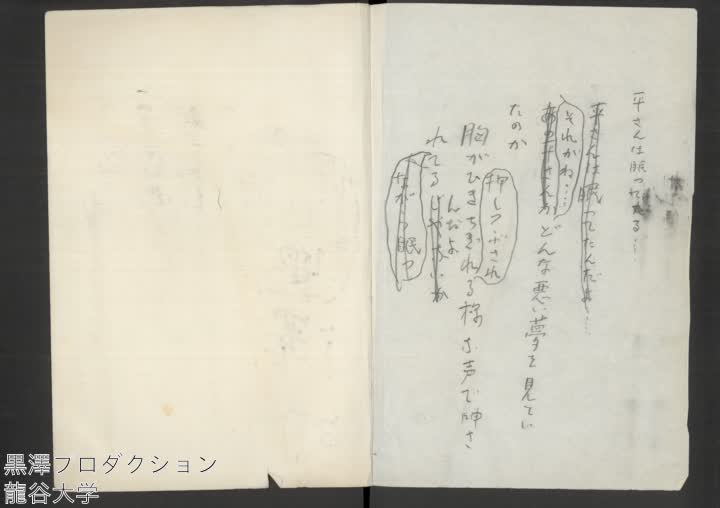 平さんは眠ってたる…
平さんは眠ってたんだよ……
それがね……
どんな悪い夢を見てい
たのか
押しつぶされ
胸がひきちぎれる様な声で呻さ
んだよ
れてるじゃないか
ながら眠つ
黒澤プロダクション
龍谷大学